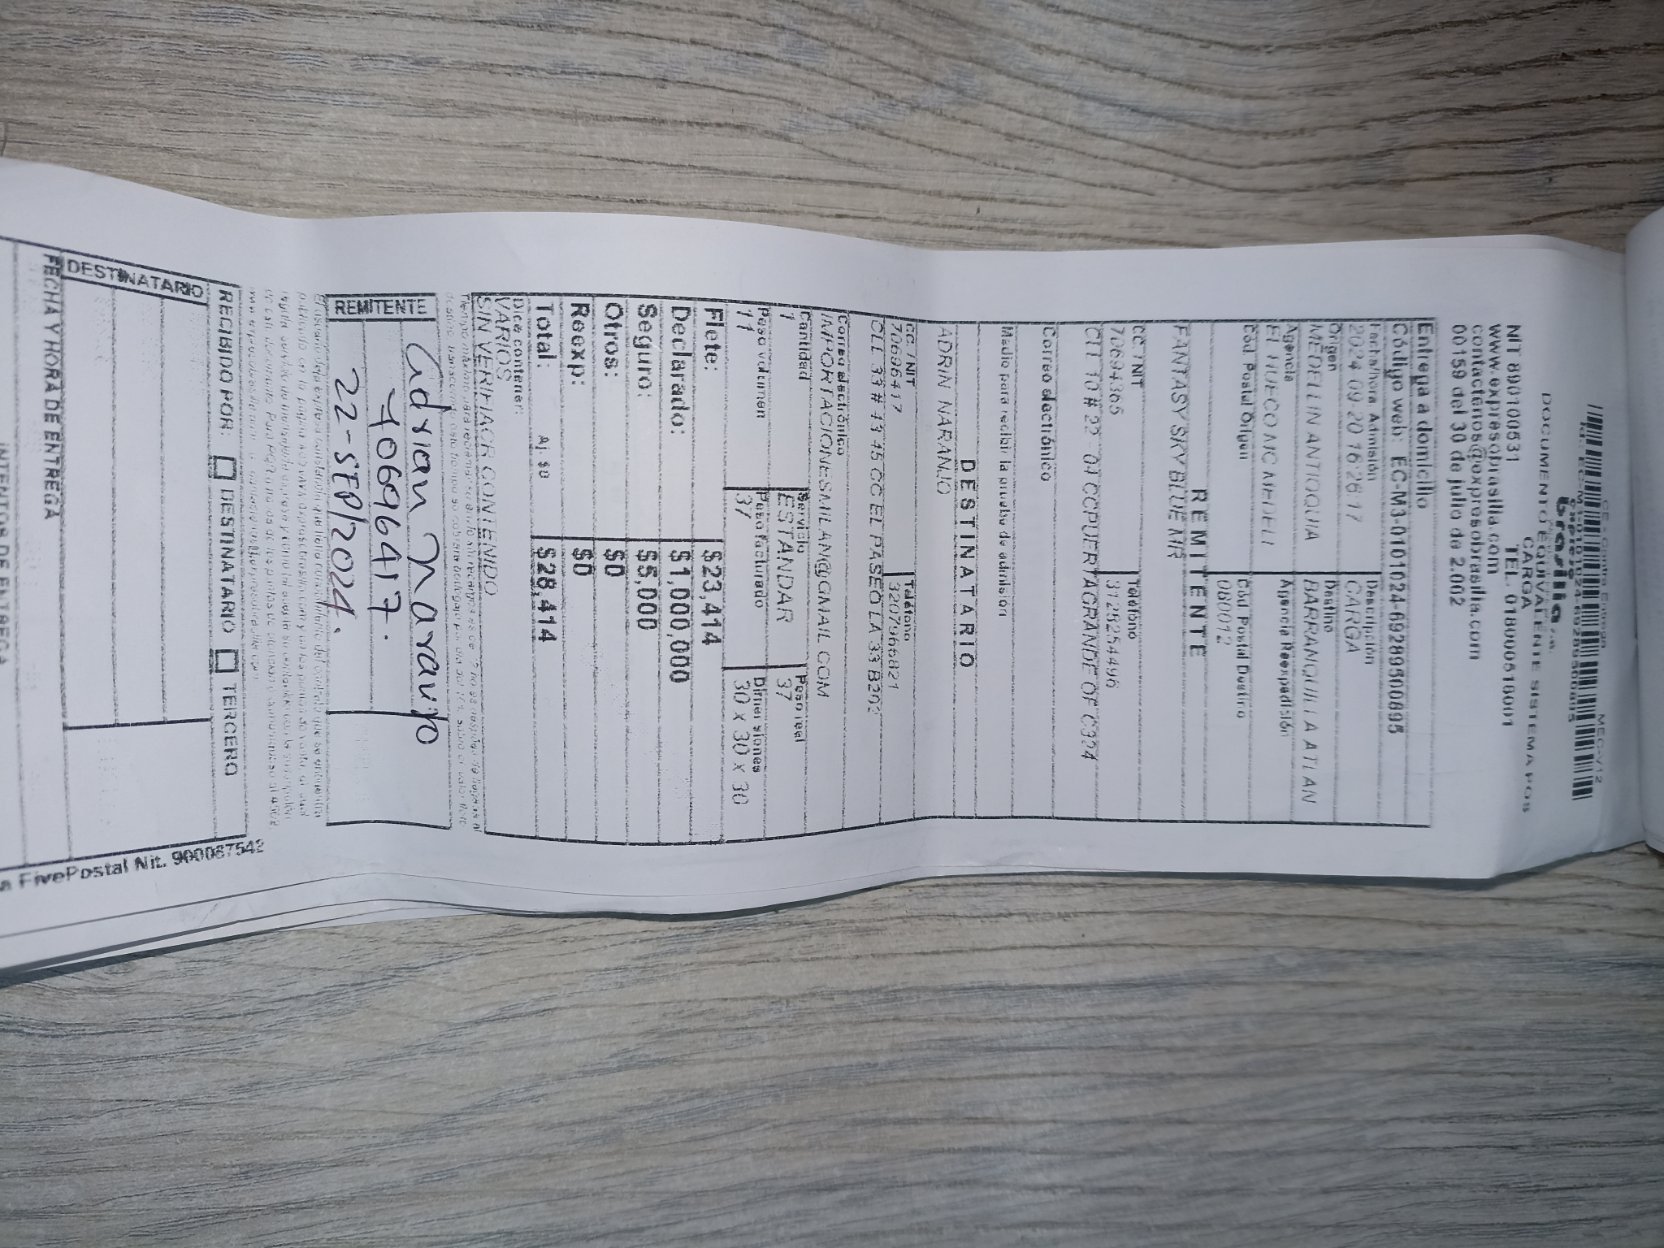 CE-Contra Entrega MEC-V12
expreso
brasilia S.A.
DOCUMENTO EQUIVALENTE SISTEMA POS
CARGA
NIT 890100531 TEL. 018000518001
www.expresobrasilia.com
contactenos@expresobrasilia.com
00159 del 30 de julio de 2.002
Entrega a domicilio
Código web: EC-M3-0101024-69289500895
Fecha/hora Admisión Descripción
2024 09 20 16:26:17 CARGA
Origen Destino
MEDELLIN ANTIOQUIA BARRANQUILLA ATLAN
Agencia Agencia Reexpedición
EL HUECO MC MEDELL
Cód. Postal Origen Cód. Postal Destino
080012
REMITENTE
FANTASY SKY BLUE MR
CC. / NIT Teléfono
70694365 3128254496
CLL 10 # 22 04 CCPUERTAGRANDE OF C324
Correo electrónico
Medio para recibir la prueba de admisión
DESTINATARIO
ADRIN NARANJO
CC. / NIT Teléfono
70696417 3207966821
CLL 33 # 43 45 CC EL PASEO LA 33 B202
Correo electrónico
IMPORTACIONESMILAN@GMAIL.COM
Cantidad Servicio Peso real
1 ESTANDAR 37
Peso volumen Peso facturado Dimensiones
11 37 30 X 30 X 30
Flete: $23,414
Declarado: $1,000,000
Seguro: $5,000
Otros: $0
Reexp: $0
Total: Aj. $0 $28,414
Dice contener:
VARIOS
SIN VERIFIACR CONTENIDO
REMITENTE
Adrian Naranjo
70696417.
22-SEP/2024.
RECIBIDO POR: DESTINATARIO TERCERO
DESTINATARIO
FECHA Y HORA DE ENTREGA
FivePostal Nit. 900087542
INTENTOS DE ENTREGA